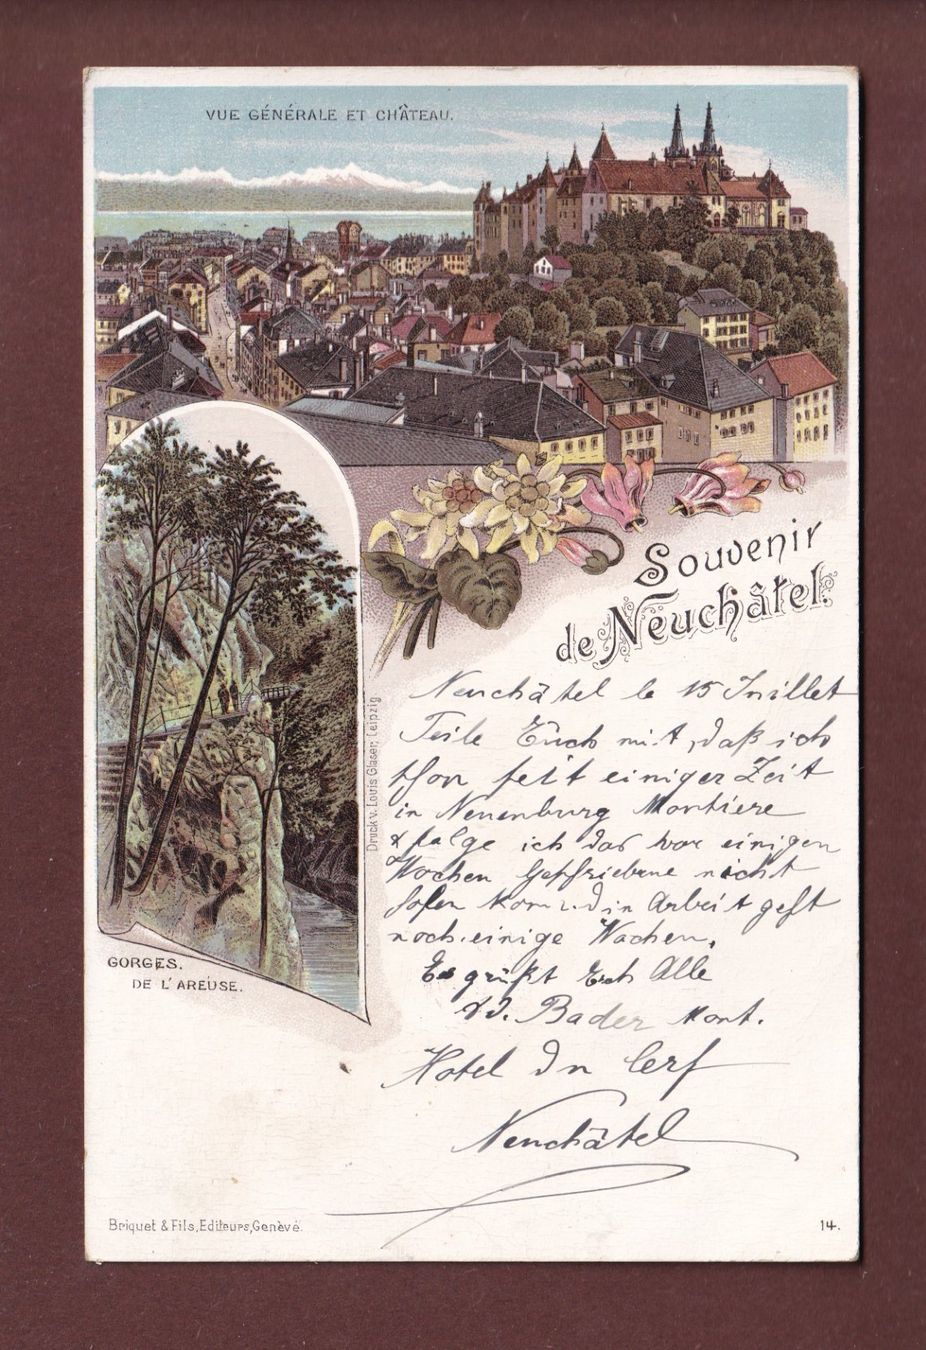 VUE GÉNÉRALE ET CHÂTEAU.
Souvenir
de Neuchâtel.
Neuchâtel le 15 Juillet
Teile Euch mit, daß ich
schon seit einiger Zeit
in Neuenburg
ich das vor einigen
Wochen nicht
in Arbeit geht
noch einige Wochen.
Es grüßt Euch Alle
Bader Mont.
Hotel Du Cerf
Neuchâtel
GORGES.
DE L'AREUSE.
Druck v. Louis Glaser, Leipzig
Briquet & Fils, Editeurs, Genève.
14.